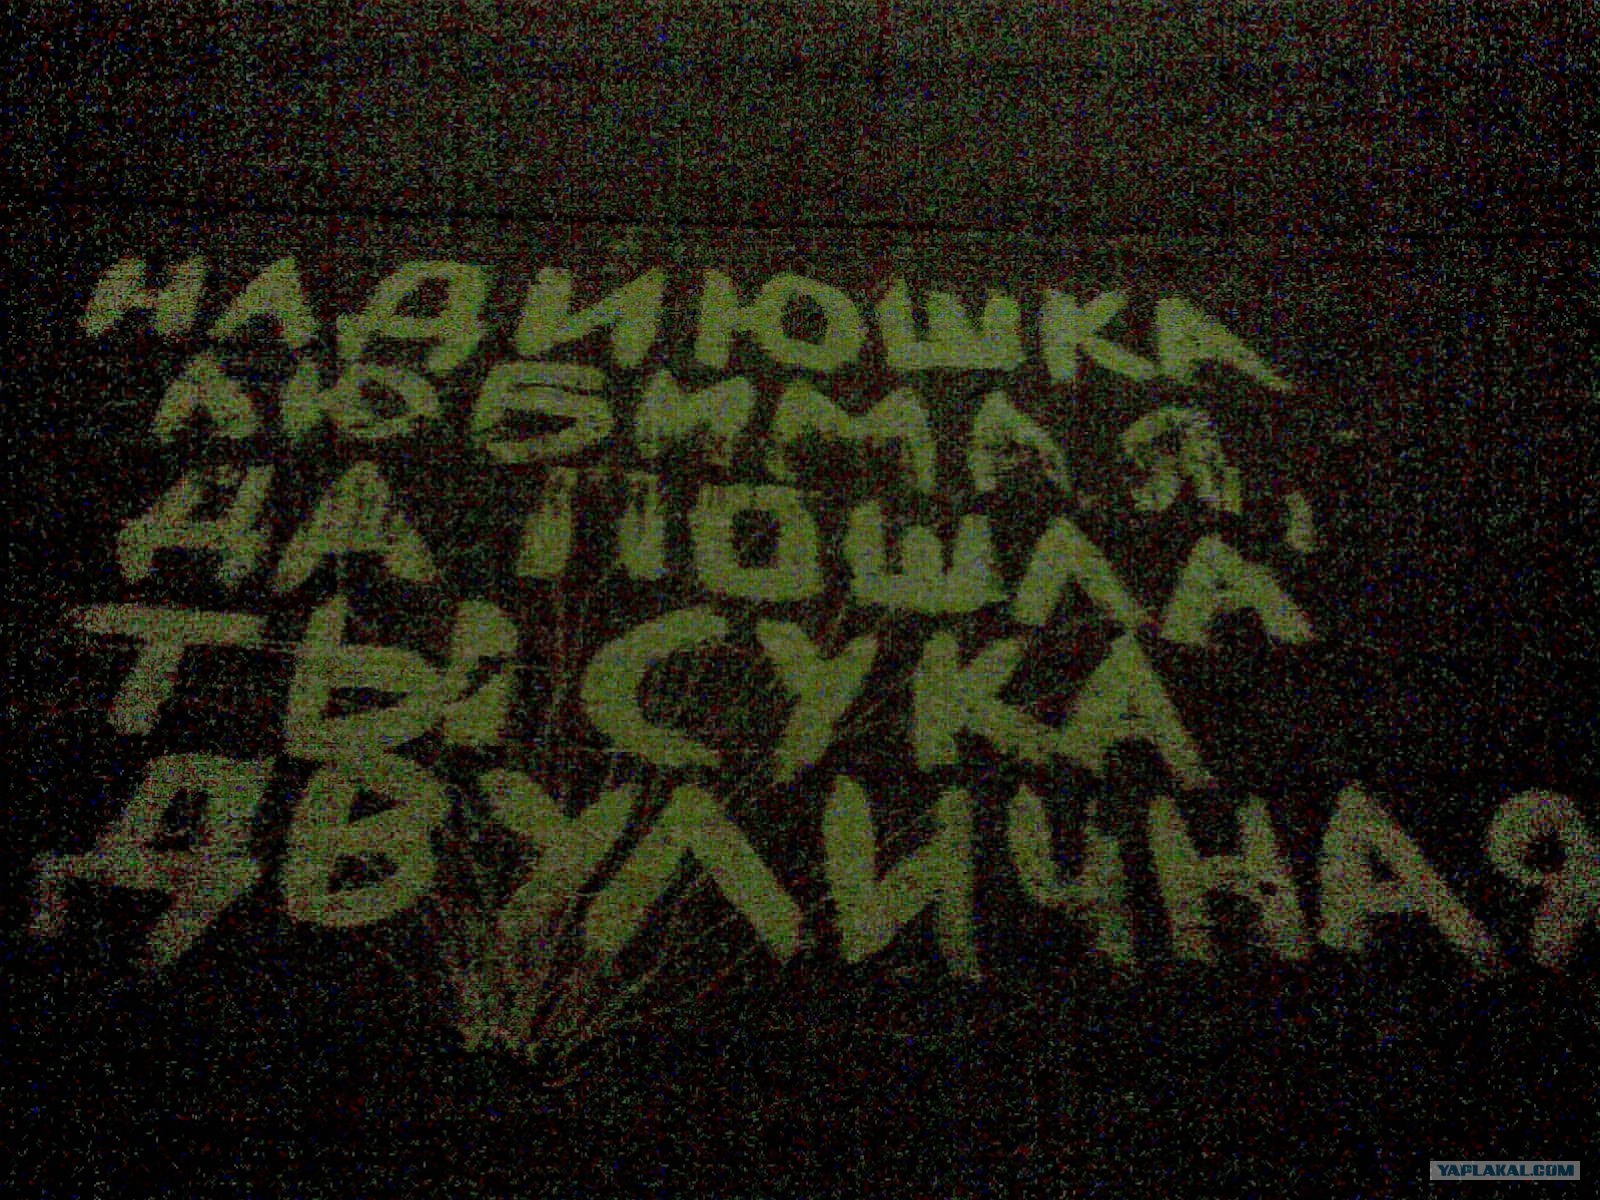 НАДИЮШКА
ЛЮБИМАЯ,
ДА ПОШЛА
ТЫ СУКА
ДВУЛИЧНАЯ
YAPLAKAL.COM